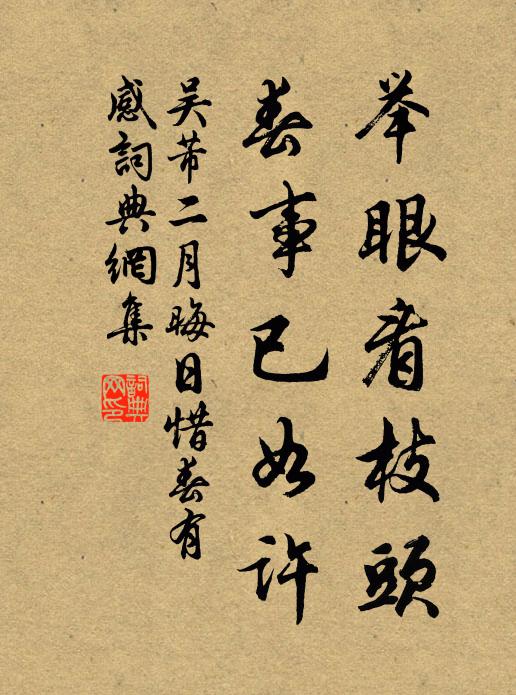 举眼看枝頭
春事已如许
吴芾二月晦日惜春有
感詞典網集
詞典网印